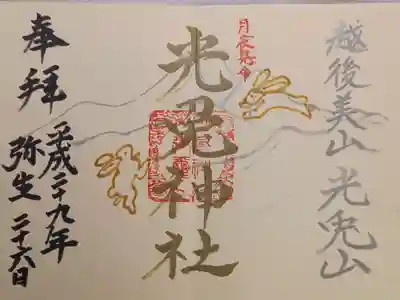 越後美山 光兎山
月夜見命
光兎神社
奉拝
平成二十九年
弥生 二十六日